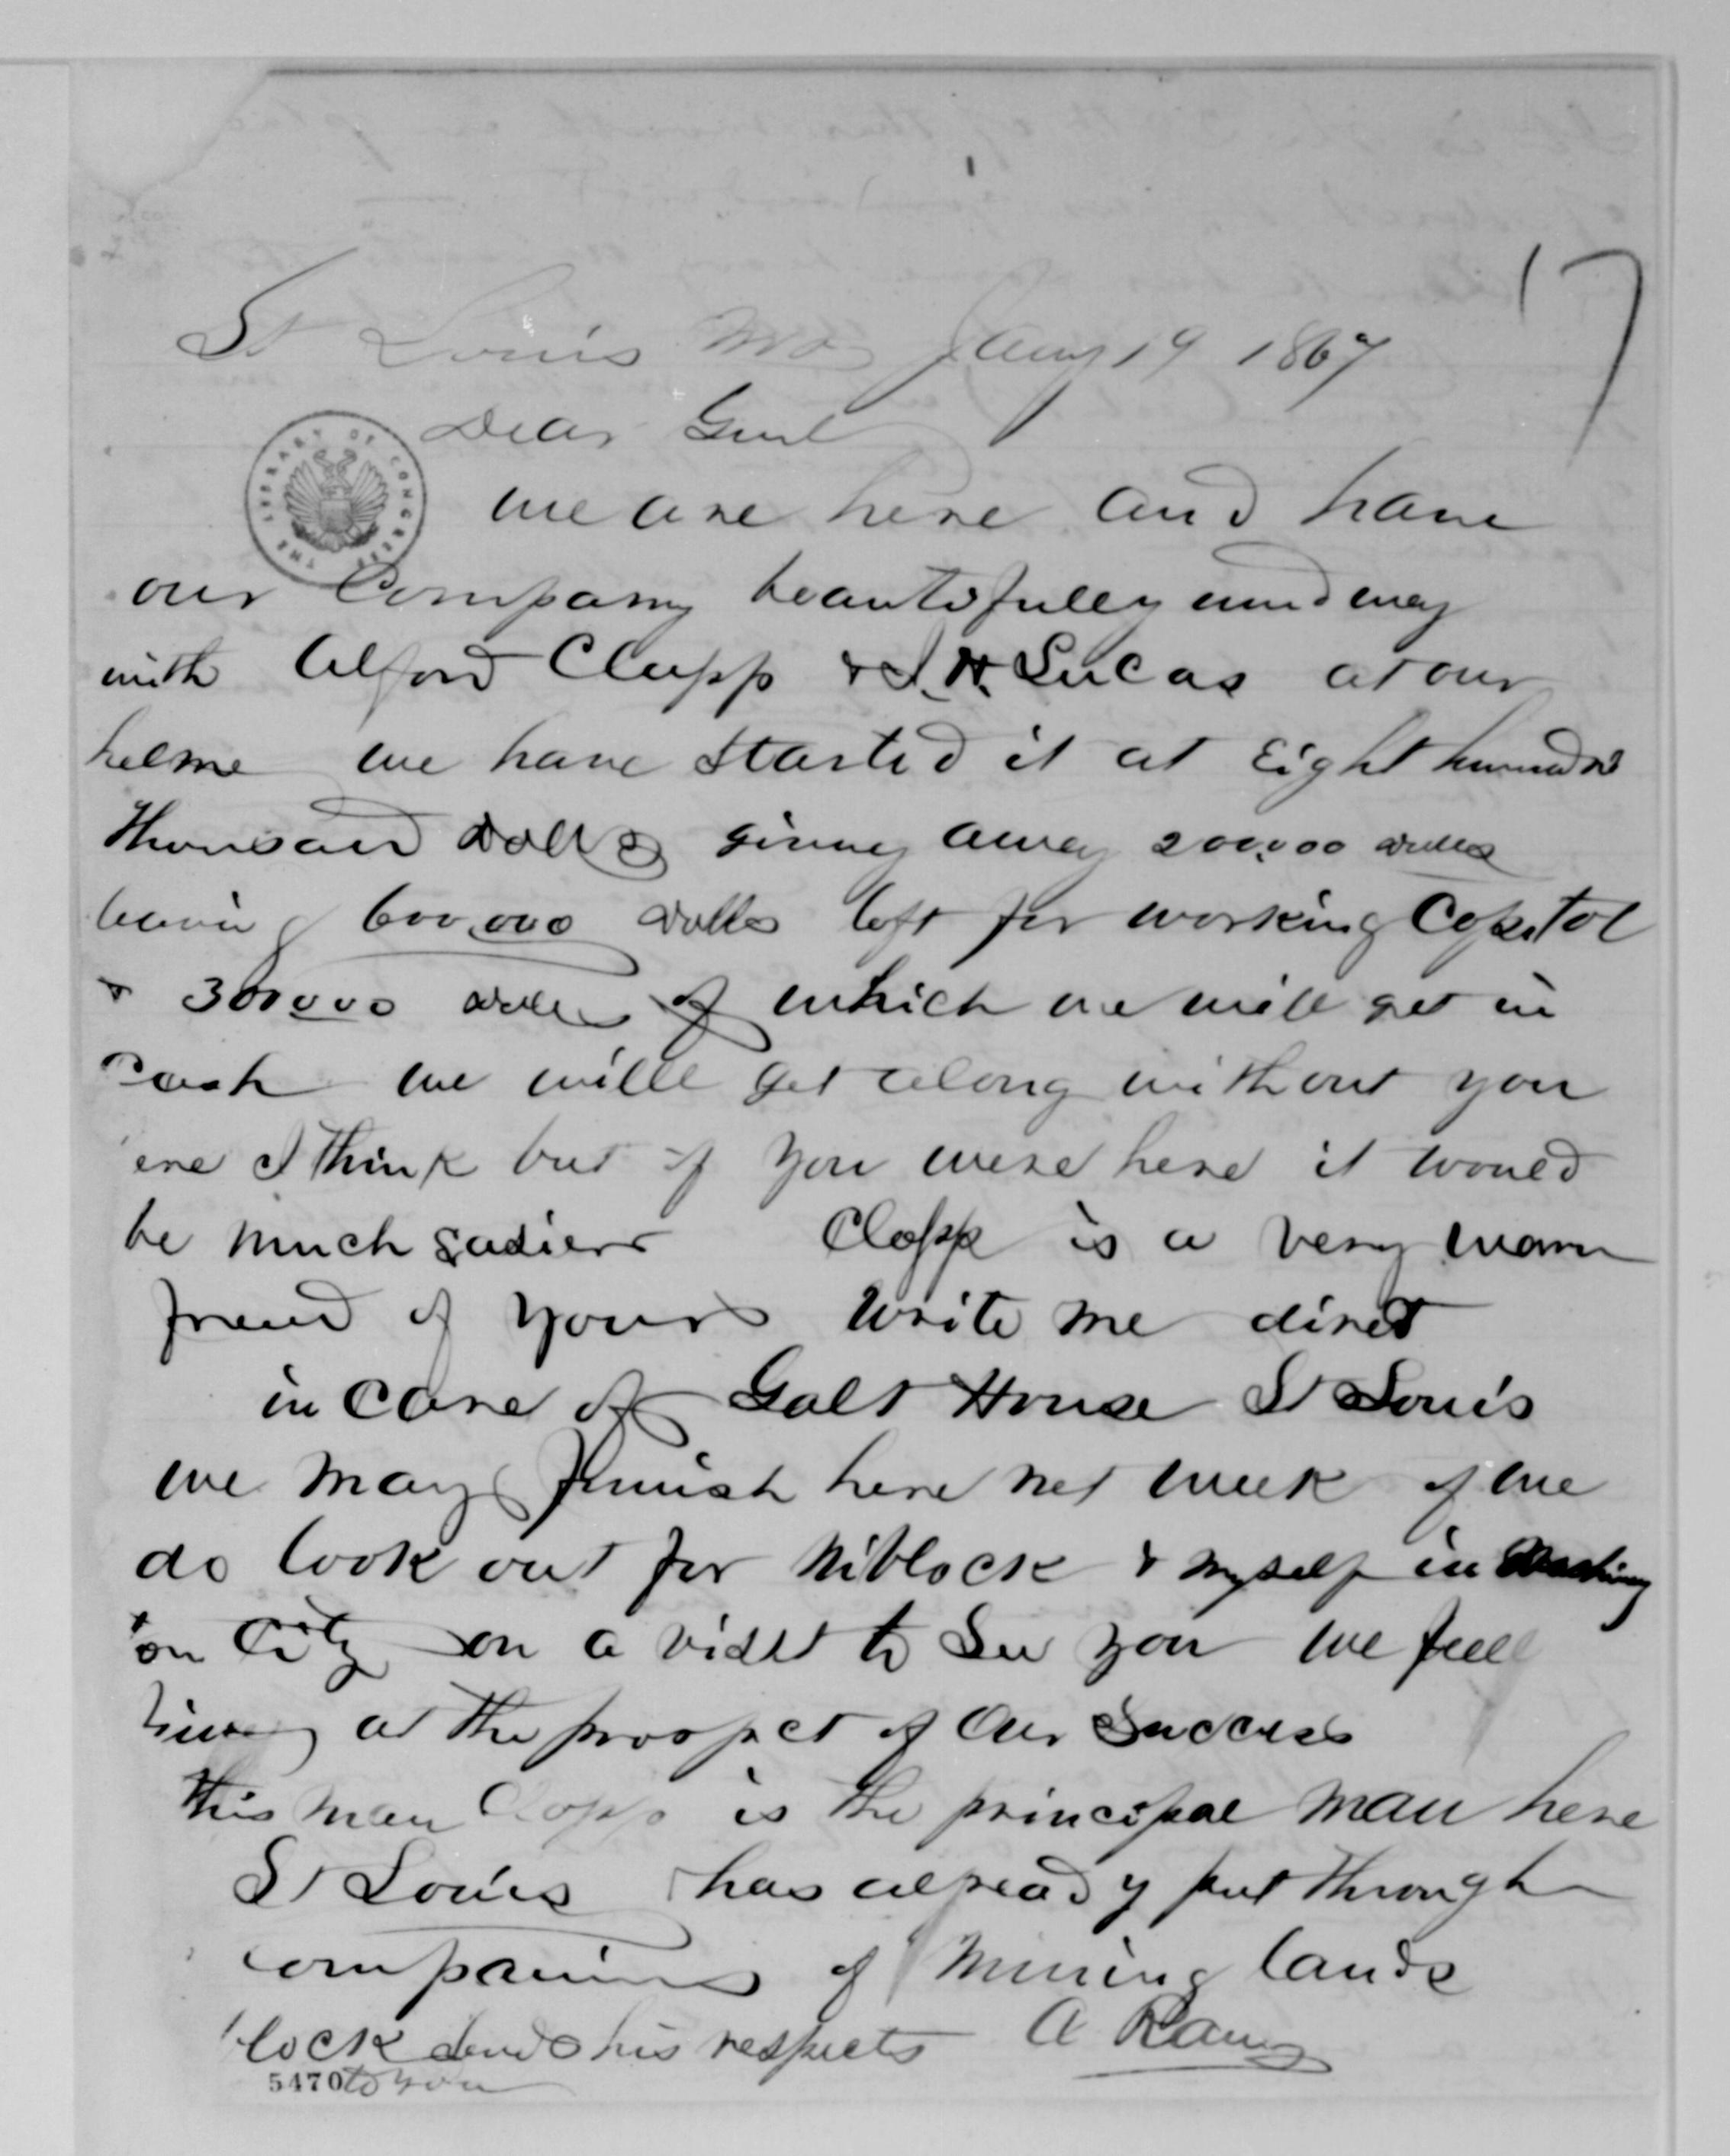 17
St Louis Mo Jany 19 1867
Dear Genl
THE LIBRARY OF CONGRESS
we are here and have
our Company beautifully und way
with Alford Clapp & J. H. Lucas at our
helme we have started it at Eight hundred
Thousand dolls giving away 200,000 dolls
leaving 600,000 dolls left for working Capitol
& 300000 dolls of which we will get in
Cash we will get along without you
ere I think but if you were here it would
be much easier Clapp is a very warm
friend of yours write me direct
in care of Galt House St Louis
we may finish here next week if we
do look out for Niblock & myself in Washing
ton City on a visit to See you we feel
at the prospect of our success
this man Clapp is the principal man here
St Louis has already put through
companies of mining lands
lock sends his respects A
5470 to you